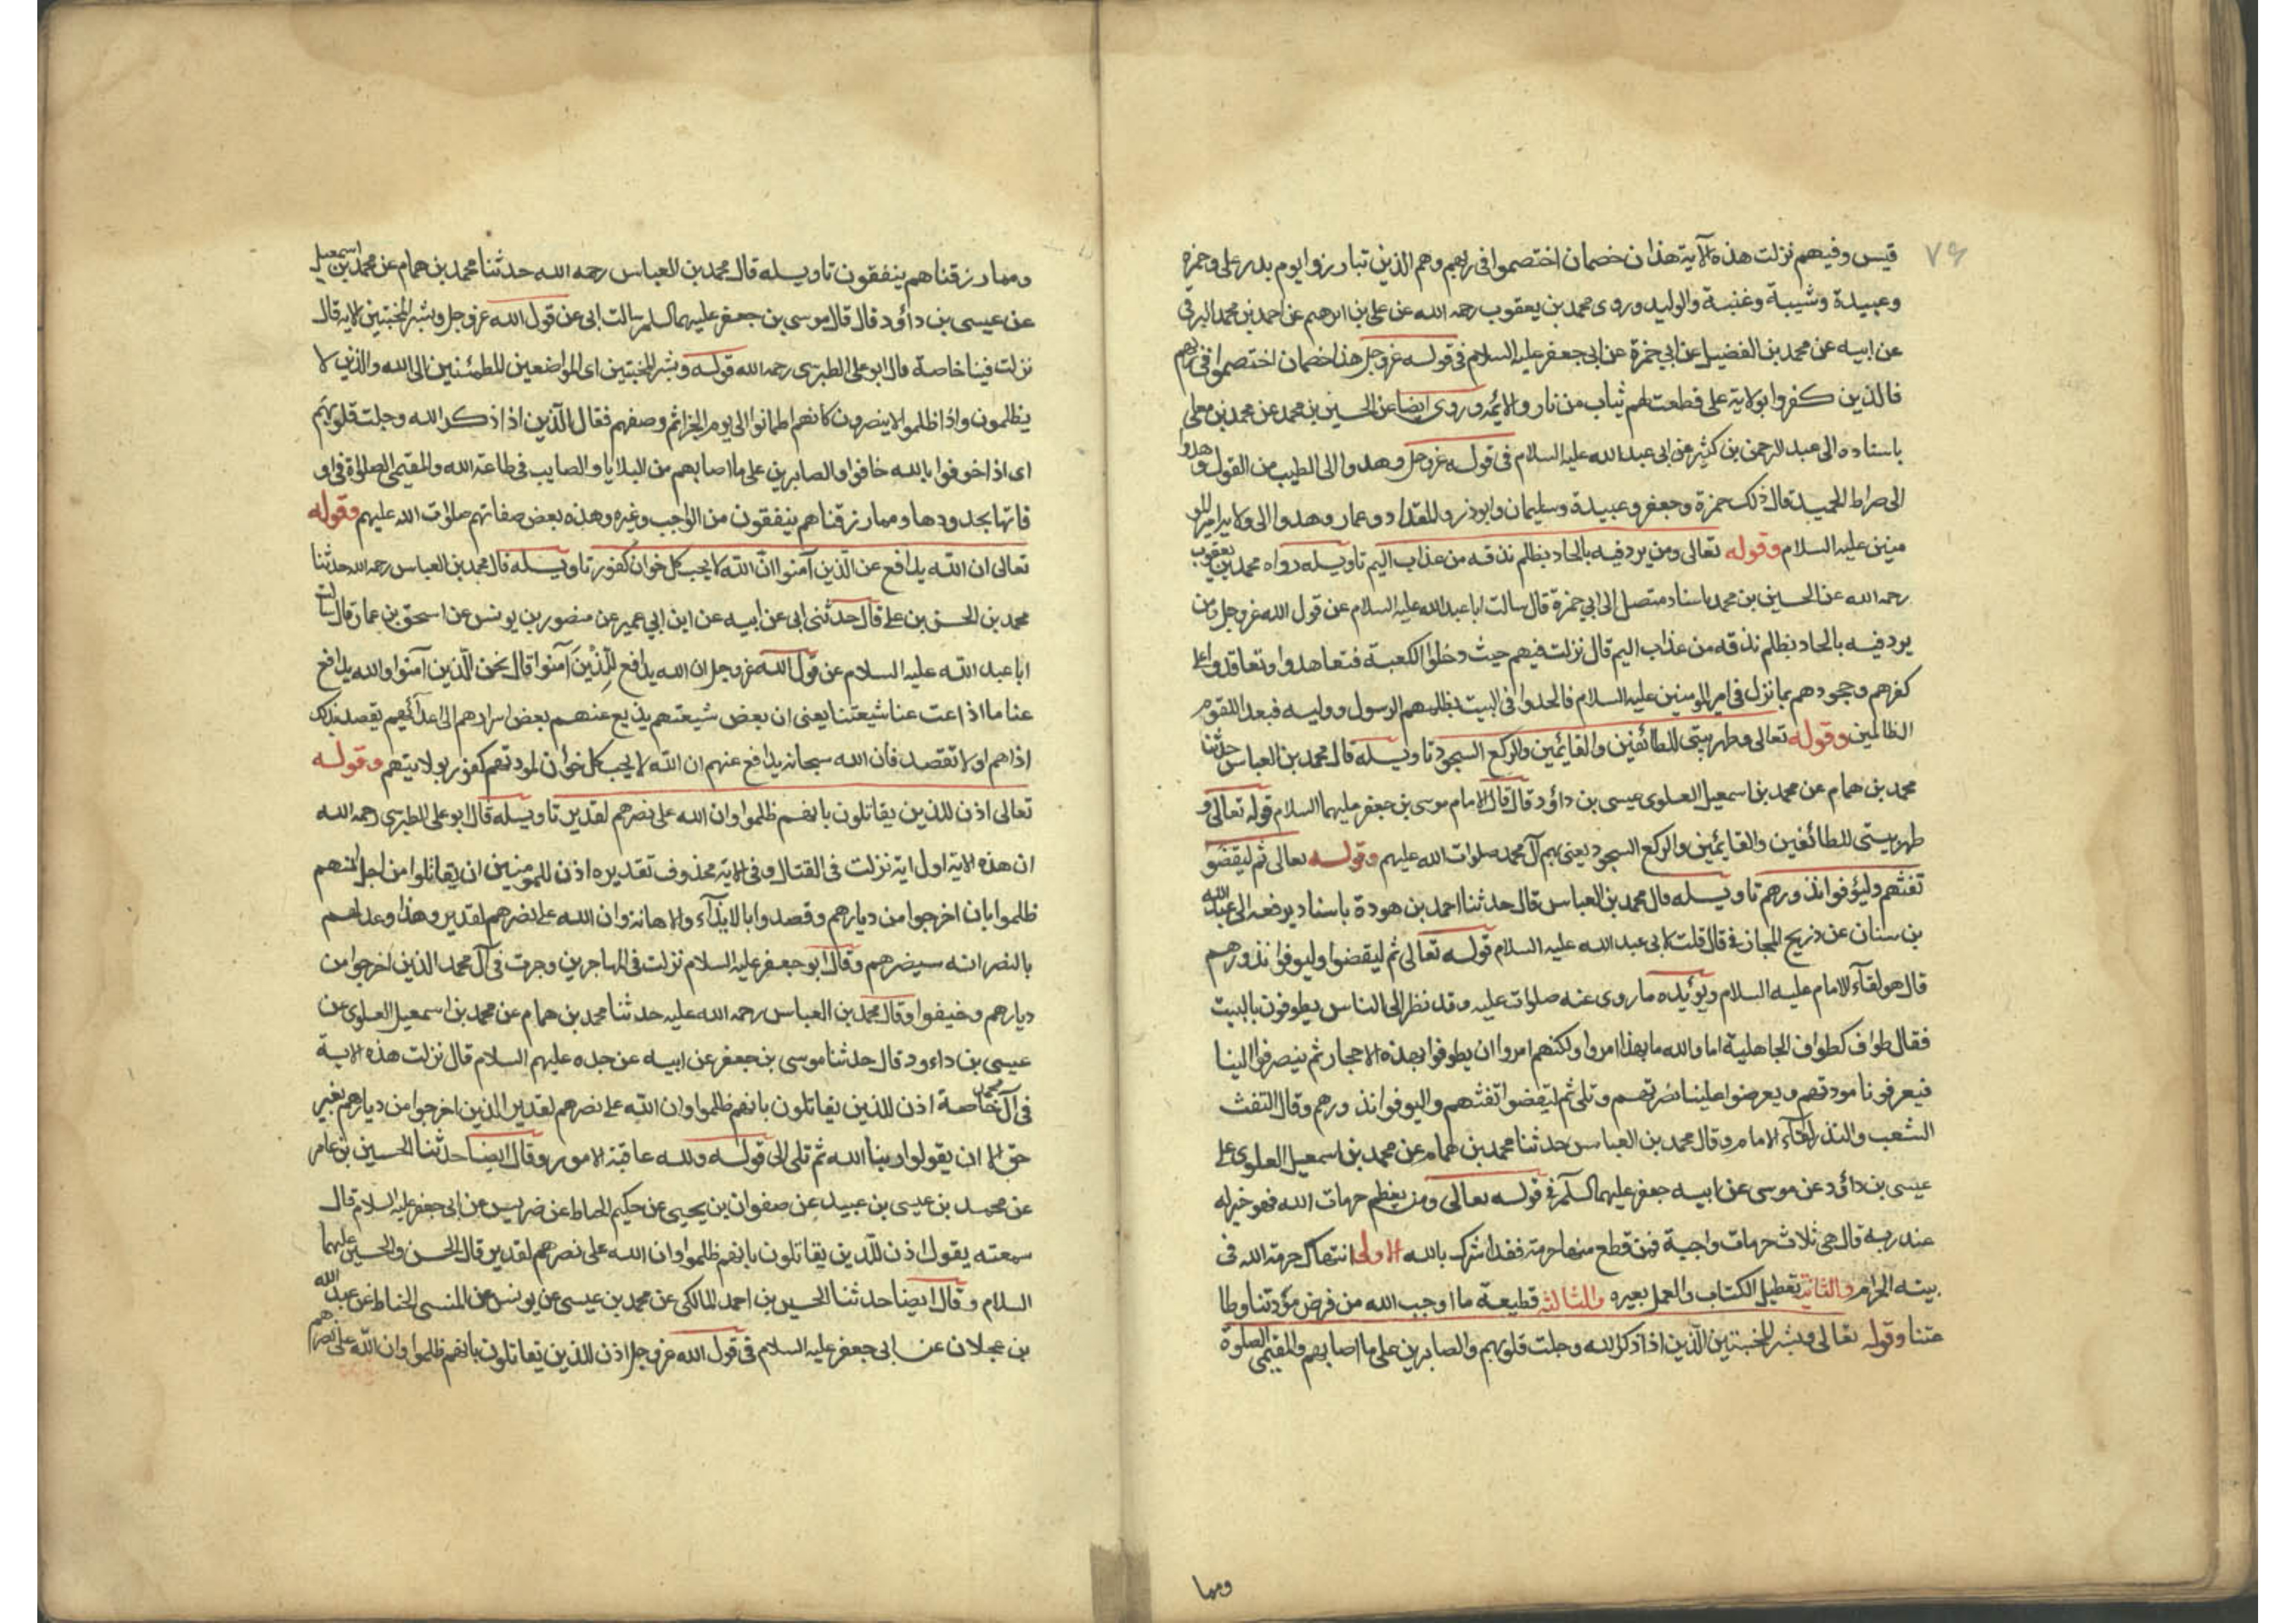 ٧٦
قيس وفيهم نزلت هذه الآية هذان خصمان اختصموا فى ربهم وهم الذين تبارزوا يوم بدر على وحمزة
وعبيدة وشيبة وعتبة والوليد وروى محمد بن يعقوب رحمه الله عن على بن ابرهيم عن احمد بن محمد البرقى
عن ابيه عن محمد بن الفضيل عن ابي حمزة عن ابى جعفر عليه السلام فى قوله عز وجل هذان خصمان اختصموا فى ربهم
فالذين كفروا بولاية على قطعت لهم ثياب من نار والائمه وروى ايضا عن الحسين بن محمد عن محمد بن معلى
باسناده الى عبد الرحمن بن كثير عن ابى عبد الله عليه السلام فى قوله عز وجل وهدوا الى الطيب من القول وهدوا
الى صراط الحميد قال ذلك حمزة وجعفر وعبيدة وسليمان وابوذر والمقداد وعمار وهدوا الى ولاية امير المو
منين عليه السلام وقوله تعالى ومن يرد فيه بالحاد بظلم نذقه من عذاب اليم تاويله رواه محمد بن يعقوب
رحمه الله عن الحسين بن محمد باسناد متصل الى ابي حمزة قال سالت ابا عبد الله عليه السلام عن قول الله عز وجل ومن
يرد فيه بالحاد بظلم نذقه من عذاب اليم قال نزلت فيهم حيث دخلوا الكعبة فتعاهدوا وتعاقدوا على
كفرهم وجحودهم بما نزل فى امير المومنين عليه السلام فالحدوا فى البيت بظلمهم الرسول ووليه فبعدا للقوم
الظالمين وقوله تعالى وطهر بيتى للطائفين والقايمين والركع السجود تاويله قال محمد بن العباس حدثنا
محمد بن همام عن محمد بن اسمعيل العلوى عيسى بن داؤد قال قال الامام موسى بن جعفر عليهما السلام قوله تعالى و
طهر بيتى للطائفين والقايمين والركع السجود يعنى بهم آل محمد صلوات الله عليهم وقوله تعالى ثم ليقضوا
تفثهم وليؤفوا نذورهم تاويله قال محمد بن العباس قال حدثنا احمد بن هودة باسناد يرفعه الى عبد الله
بن سنان عن ذريح المحاربى قال قلت لابى عبد الله عليه السلام قوله تعالى ثم ليقضوا وليوفوا نذورهم
قال هو لقآء الامام عليه السلام ويؤيده ما روى عنه صلوات عليه وقد نظر الى الناس يطوفون بالبيت
فقال طواف كطواف الجاهلية اما والله ما بهذا امروا ولكنهم امروا ان يطوفوا بهذه الاحجار ثم ينصرفوا الينا
فيعرفونا مودتهم ويعرضوا علينا نصرتهم وتلى ثم ليقضوا تفثهم واليوفوا نذورهم وقال التفث
الشعب والنذر لقآء الامام وقال محمد بن العباس حدثنا محمد بن همام عن محمد بن اسمعيل العلوى على
عيسى بن داؤد عن موسى عن ابيه جعفر عليهما السلم فى قوله تعالى ومن يعظم حرمات الله فهو خير له
عند ربه قال هى ثلاث حرمات واجبة فمن قطع منها حرمة فقد اشرك بالله الاولى انتهاك حرمة الله فى
بيته الحرام والثانية تعطيل الكتاب والعمل بغيره والثالثة قطيعة ما اوجب الله من فرض مودتنا وطا
عتنا وقوله تعالى وبشر المخبتين الذين اذا ذكر الله وجلت قلوبهم والصابرين على ما اصابهم والمقيمى الصلوة
ومما
ومما رزقناهم ينفقون تاويله قال محمد بن العباس رحمه الله حدثنا محمد بن همام عن محمد بن اسمعيل
عن عيسى بن داؤد قال قال موسى بن جعفر عليهما السلم سالت ابى عن قول الله عز وجل وبشر المخبتين الاية قال
نزلت فينا خاصة قال ابو على الطبرسى رحمه الله قوله وبشر المخبتين اى المواضعين للطمئنين الى الله والذين لا
يظلمون واذا ظلموا لا ينصرون كانهم اطمانوا الى يوم الجزا ثم وصفهم فقال الذين اذا ذكر الله وجلت قلوبهم
اى اذا خوفوا بالله خافوا والصابرين على ما اصابهم من البلايا والمصايب فى طاعة الله والمقيمى الصلوة فى او
قاتها بحدودها ومما رزقناهم ينفقون من الواجب وغيره وهذه بعض صفاتهم صلوات الله عليهم وقوله
تعالى ان الله يدافع عن الذين آمنوا ان الله لا يحب كل خوان كفور تاويله قال محمد بن العباس رحمه الله حدثنا
محمد بن الحسن بن على قال حدثنى ابى عن ابيه عن ابن ابى عمير عن منصور بن يونس عن اسحق بن عمار قال سالت
ابا عبد الله عليه السلام عن قول الله عز وجل ان الله يدافع للذين آمنوا قال نحن الذين آمنوا والله يدافع
عنا ما اذاعت عنا شيعتنا يعنى ان بعض شيعتهم يذيع عنهم بعض اسرارهم الى اعدائهم يقصد بذلك
اذاهم او لا تقصد فان الله سبحانه يدافع عنهم ان الله لا يحب كل خوان لمودتهم كفور بولايتهم وقوله
تعالى اذن للذين يقاتلون بانهم ظلموا وان الله على نصرهم لقدير تاويله قال ابو على الطبرسى رحمه الله
ان هذه الاية اول اية نزلت فى القتال وفى الاية محذوف تقديره اذن للمومنين ان يقاتلوا من اجل انهم
ظلموا بان اخرجوا من ديارهم وقصدوا بالايذآء والاهانة وان الله على نصرهم لقدير وهذا وعد لهم
بالنصر انه سينصرهم وقال ابو جعفر عليه السلام نزلت فى المهاجرين وجرت فى آل محمد الذين اخرجوا من
ديارهم وخيفوا وقال محمد بن العباس رحمه الله عليه حدثنا محمد بن همام عن محمد بن اسمعيل العلوى عن
عيسى بن داءود قال حدثنا موسى بن جعفر عن ابيه عن جده عليهم السلام قال نزلت هذه الاية
فى آل محمد خاصة اذن للذين يقاتلون بانهم ظلموا وان الله على نصرهم لقدير الذين اخرجوا من ديارهم بغير
حق الا ان يقولوا ربنا الله ثم تلى الى قوله ولله عاقبة الامور وقال ايضا حدثنا الحسين بن عامر
عن محمد بن عيسى بن عبيد عن صفوان بن يحيى عن حكيم الحناط عن ضريس عن ابى جعفر عليه السلام قال
سمعته يقول اذن للذين يقاتلون بانهم ظلموا وان الله على نصرهم لقدير قال الحسن والحسين عليهما
السلام وقال ايضا حدثنا الحسين بن احمد المالكى عن محمد بن عيسى عن يونس عن المنسى الحناط عن عبد الله
بن عجلان عن ابى جعفر عليه السلام فى قول الله عز وجل اذن للذين يقاتلون بانهم ظلموا وان الله على نصرهم